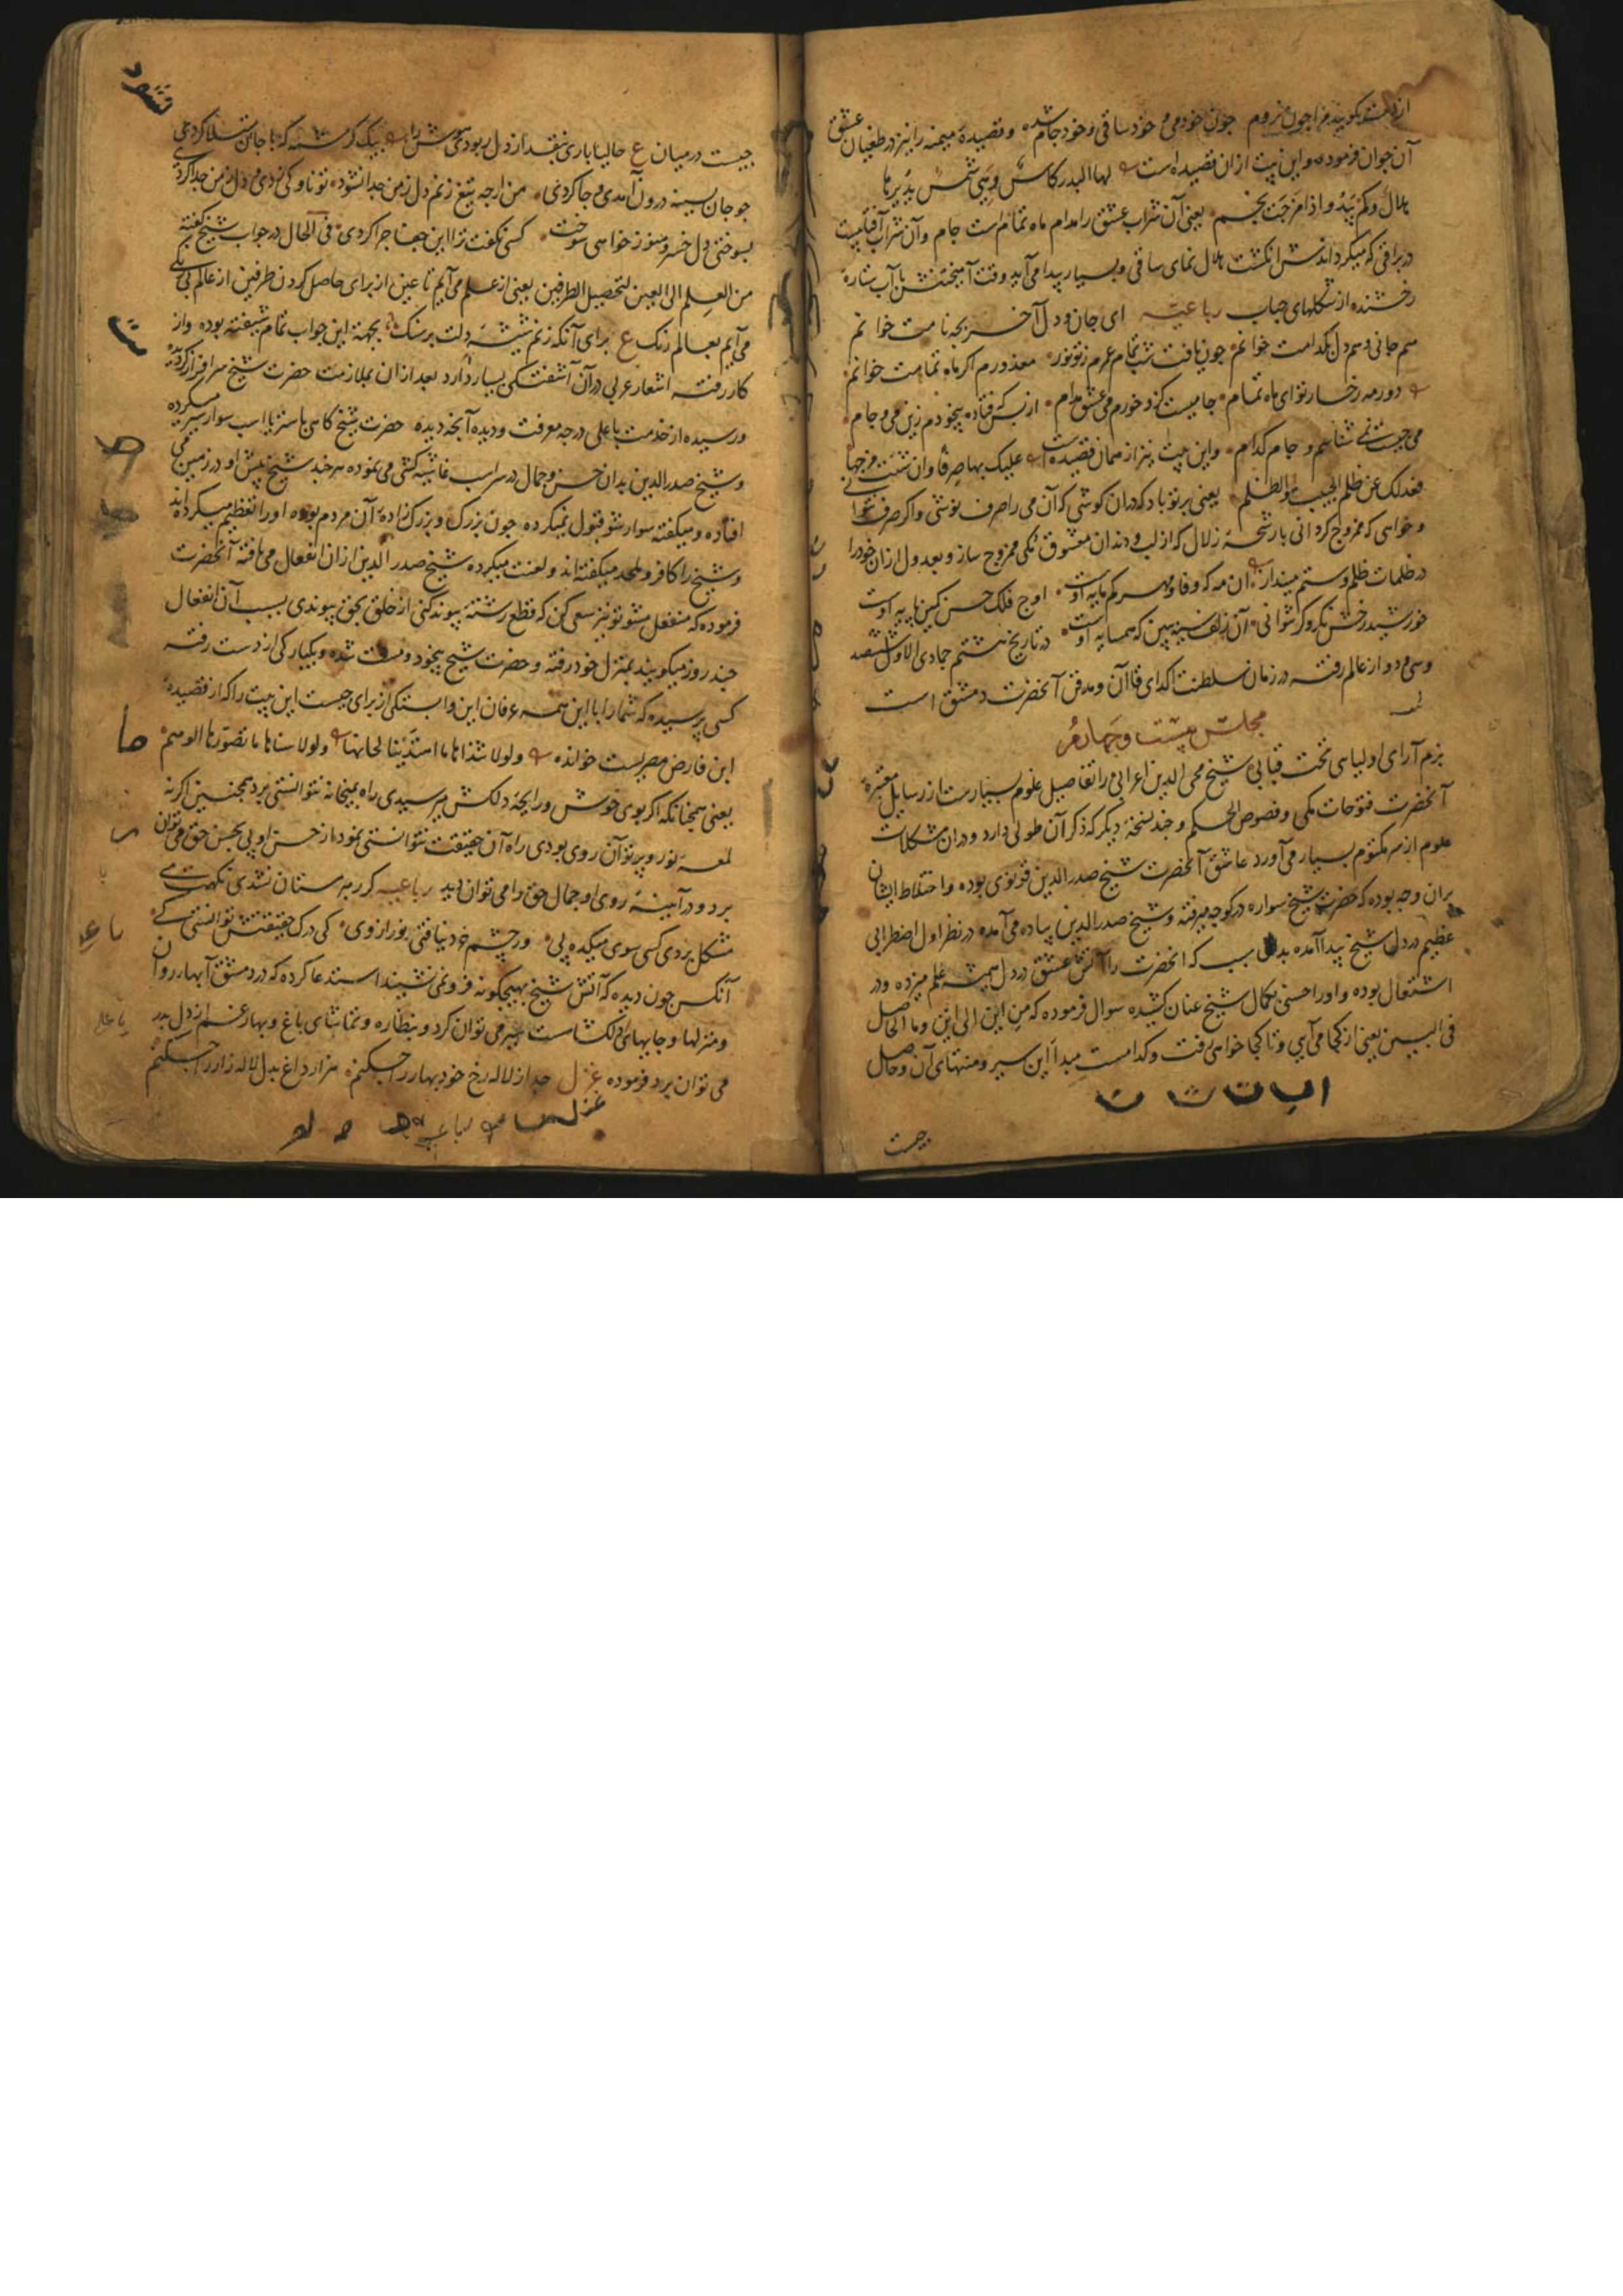 از دست بگویید مرا چون نروم چون خود می و خود ساقی و خود جام شده و قصیده میمیه را نیز در طغیان عشق
آن جوان فرموده و این بیت از ان قصیده است لها البدر کاس و هی شمس یدیرها
هلال و کم یبدو اذا مزجت نجم یعنی آن شراب عشق را مدام ماه تمام است جام و آن شراب آفتابیست
در براقی که میگرداندش انگشت هلال نمای ساقی و بسیار پیدا می آید وقت آمیختنش بآب ستاره
رخشنده از شکلهای حباب رباعیه ای جان و دل آخر بچه نامت خوانم
هم جانی و هم دل بکدامت خوانم چون یافت شب تمام عمرم ز تو نور معذورم اگر ماه تمامت خوانم
دور مه رخسار تو ای ماه تمام جامیست کزو خورم می عشق مدام از بس که فتاده بیخودم زین می و جام
می چیست نمی شناسم و جام کدام و این بیت نیز از همان قصیده است علیک بها صرفا و ان شئت مزجها
فعدلک عن ظلم الحبیب هو الظلم یعنی بر تو باد که دران کوشی که آن می را صرف نوشی و اگر صرف نتوانی
و خواهی که ممزوج گردانی بارشحه زلال که از لب و دندان معشوق مکی ممزوج ساز و بعدول ازان خود را
در ظلمات ظلم و ستم مینداز آن مه که وفا و مهر کم مایه اوست اوج فلک حسن کمین پایه اوست
خورشید رخش نگر و گر نتوانی آن زلف سیه ببین که همسایه اوست در تاریخ هشتم جمادی الاول ششصد
و سی و دو از عالم رفته در زمان سلطنت اکدای قاآن و مدفن آنحضرت دمشق است
مجلس بیست و چهارم
بزم آرای اولیای تحت قبابی شیخ محی الدین اعرابی را تفاصیل علوم بسیارست از رسایل معتبره
آنحضرت فتوحات مکی و فصوص الحکم و چند نسخه دیگر که ذکر آن طولی دارد و دران مشکلات
علوم از سر مکتوم بسیار می آورد عاشق آنحضرت شیخ صدر الدین قونوی بوده و اختلاط ایشان
بران وجه بوده که حضرت شیخ سواره در کوچه میرفته و شیخ صدر الدین پیاده می آمده در نظر اول اضطرابی
عظیم در دل شیخ پیدا آمده بدان سبب که آنحضرت را آتش عشق در دل همیشه علم میزده و در
اشتغال بوده و او را حسنی بکمال شیخ عنان کشیده سوال فرموده که من این الی این و ما الحاصل
فی البین یعنی از کجا می آیی و تا کجا خواهی رفت و کدامست مبدأ این سیر و منتهای آن و حاصل
ا ب ت ث
چیست
چیست در میان ع حالیا باری بنقد از دل ربودی هوش را بیک کرشمه که با جان مبتلا کردی
چو جان بسینه درون آمدی و جا کردی من ار چه تیغ زنم دل ز من جدا نشود تو ناوکی زدی و دل ز من جدا کردی
بسوختی دل خسرو هنوز خواهی سوخت کسی نگفت ترا این جفا چرا کردی فی الحال در جواب شیخ گفته
من العلم الی العین لتحصیل الطرفین یعنی از علم می آیم تا عین از برای حاصل کردن طرفین از عالم بی رنگی
می آیم بعالم رنگ ع برای آنکه زنم شیشه دلت بر سنگ بجهة این جواب تمام شیفته بوده و از
کار رفته اشعار عربی در آن آشفتگی بسیار دارد بعد ازان بملازمت حضرت شیخ سرافراز گردیده
و رسیده از خدمت باعلی درجه معرفت و دیده آنچه دیده حضرت شیخ گاهی باستر یا اسب سوار سیر میکرده
و شیخ صدر الدین بدان حسن و جمال در سر اسب غاشیه کشی می نموده هر چند شیخ پیش او در زمین می
افتاده و میگفته سوار شو قبول نمیکرده چون بزرگ و بزرگ زاده آن مردم بوده او را تعظیم میکرده اند
و شیخ را کافر و ملحد میگفته اند و لعنت میکرده شیخ صدر الدین ازان انفعال می یافته آنحضرت
فرموده که منفعل مشو تو نیز سعی کن که قطع رشته پیوند کنی از خلق بحق پیوندی بسبب آن انفعال
چند روز میگویند بمنزل خود رفته و حضرت شیخ بیخود و مست شده و بیکبارگی از دست رفته
کسی پرسیده که شما را با این همه عرفان این وابستگی از برای چیست این بیت را که از قصیده
ابن فارض مصریست خوانده و لولا شذاها ما اهتدینا لحانها و لولا سناها ما تصورها الوهم
یعنی همچنانکه اگر بوی خوش و رایحه دلکش می رسیدی راه بمیخانه نتوانستی برد همچنین اگر نه
لمعه نور و پرتو آن روی بودی راه آن حقیقت نتوانستی نمود از حسن او پی بحسن حق می توان
برد و در آیینه روی او جمال حق را می توان دید رباعیه گر رهبر مستان نشدی نکهت می
مشکل بردی کسی سوی میکده پی ور چشم خرد نیافتی نور از وی کی درک حقیقتش توانستی کی
آنکس چون دیده که آتش شیخ بهیچگونه فرو نمی نشیند استدعا کرده که در دمشق آبها روان
و منزلها و جایهای دلکشاست سیر می توان کرد و بنظاره و تماشای باغ و بهار غم از دل بدر
می توان برد فرموده غزل جدا از لاله رخ خود بهار را چکنم هزار داغ بدل لاله زار را چکنم